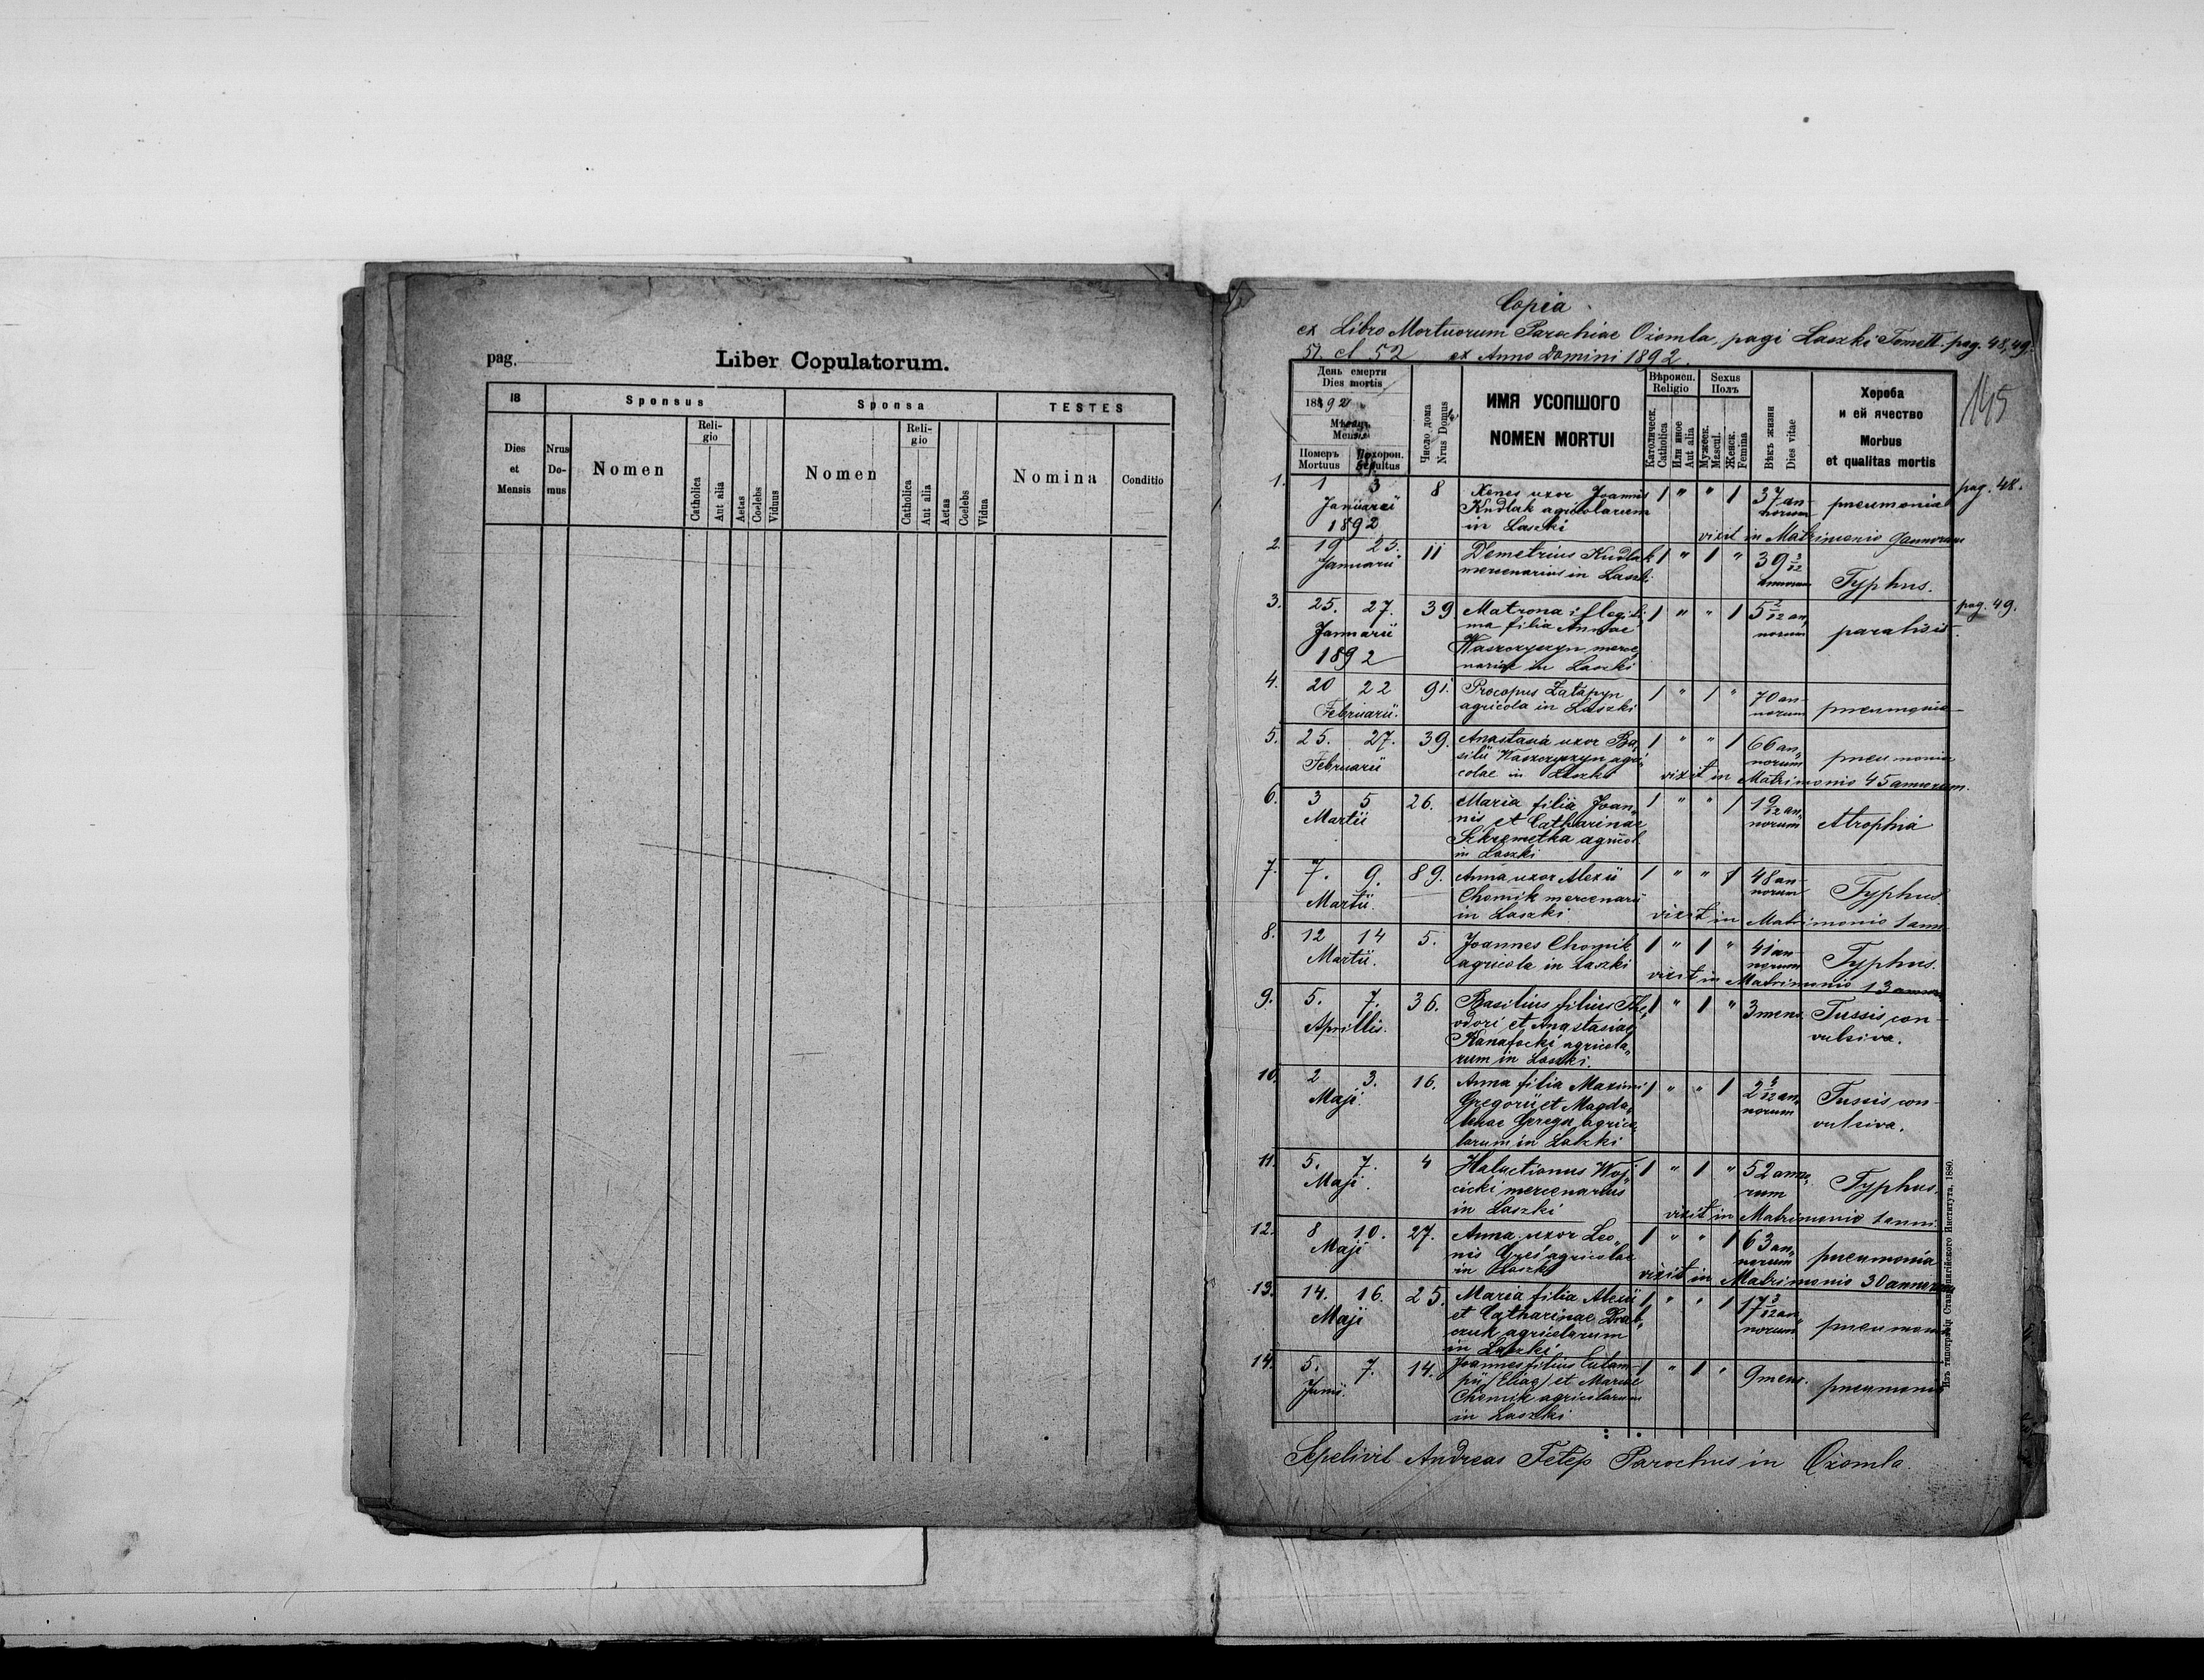 pag.
Liber Copulatorum.
18
Sponsus
Sponsa
TESTES
Dies et Mensis
Nrus Do-mus
Nomen
Reli-gio
Catholica
Aut alia
Aetas
Coelebs
Viduus
Nomen
Reli-gio
Catholica
Aut alia
Aetas
Coelebs
Vidua
Nomina
Conditio
Copia
ex Libro Mortuorum Parochiae Ożomla, pagi Laszki pag. 48, 49.
51. et 52 ex Anno Domini 1892
145
День смерти
Dies mortis
1892
Мѣсяць
Mensis
Померъ
Mortuus
Похорон.
Sepultus
Число дома
Nrus Domus
ИМЯ УСОПШОГО
NOMEN MORTUI
Вѣроисп.
Religio
Католическ.
Catholica
Или иное
Aut alia
Sexus
Полъ
Мужеск.
Mascul.
Женск.
Femina
Вѣкъ жизни
Dies vitae
Хороба
и ей ячество
Morbus
et qualitas mortis
1. 1 3 8 Xenes uxor Joannis 1 " " 1 37 an- pneumonia pag. 48.
Januarii Kudlak agricolarum norum
1892 in Laszki vixit in Matrimonio 9 annorum
2. 19 23. 11 Demetrius Kudlak 1 " 1 " 39
Januarii mercenarius in Laszki annorum Typhus.
3. 25. 27. 39 Matrona illegiti- 1 " " 1 5 2/12 an, pag. 49.
Januarii ma filia Annae norum paralisis
1892 Waszczyszyn merce,
nariae in Laszki
4. 20 22 91. Procopus Zatapyn 1 " 1 " 70 an-
Februarii. agricola in Laszki norum pneumonia
5. 25. 27. 39. Anastasia uxor Ba, 1 " " 1 66 an,
Februarii silii Waszczyszyn agri, norum pneumonia
colae in Laszki vixit in Matrimonio 45 annorum.
6. 3 5 26. Maria filia Joan, 1 " " 1 1 9/12 an,
Martii nis et Catharinae norum Atrophia
agricol
in Laszki
7. 7. 9. 89. Anna uxor Alexii 1 " " 1 48 an- Typhus.
Martii. Chomik mercenarii norum
in Laszki vixit in Matrimonio 1 ann
8. 12 14 5. Joannes Chomik 1 " 1 " 41 an- Typhus.
Martii. agricola in Laszki norum
vixit in Matrimonio 13 annor
9. 5. 7. 36. Basilius filius The, 1 " 1 " 3 mens. Tussis con-
Aprillis. odori et Anastasiae vulsiva.
Kanafocki agricola,
rum in Laszki.
10. 2 3. 16. Anna filia Maximi 1 " " 1 2 an, Tussis con-
Maji. Gregorii et Magda, norum vulsiva.
lenae agrico
larum in Laszki
11. 5. 7. 4 Woj, 1 " 1 " 52 anno,
Maji. cicki mercenarius rum Typhus.
in Laszki vixit in Matrimonio 1 anni.
12. 8 10. 27. Anna uxor Leo, 1 " " 1 63 an,
Maji nis Greś agricolae norum pneumonia
in Laszki vixit in Matrimonio 30 annorum
13. 14. 16. 25. Maria filia Alexii 1 " " 1 17 3/12 an,
Maji et Catharinae norum pneumonia
agricolarum
in Laszki
14. 5. 7. 14. Joannes filius Eulam- 1 " 1 " 9 mens. pneumonia
Junii. pii (Eliae) et Mariae
Chomik agricolarum
in Laszki
Sepelivit Andreas Fetep Parochus in Ożomla.
Изъ типографіи Ставропигійского Института, 1880.